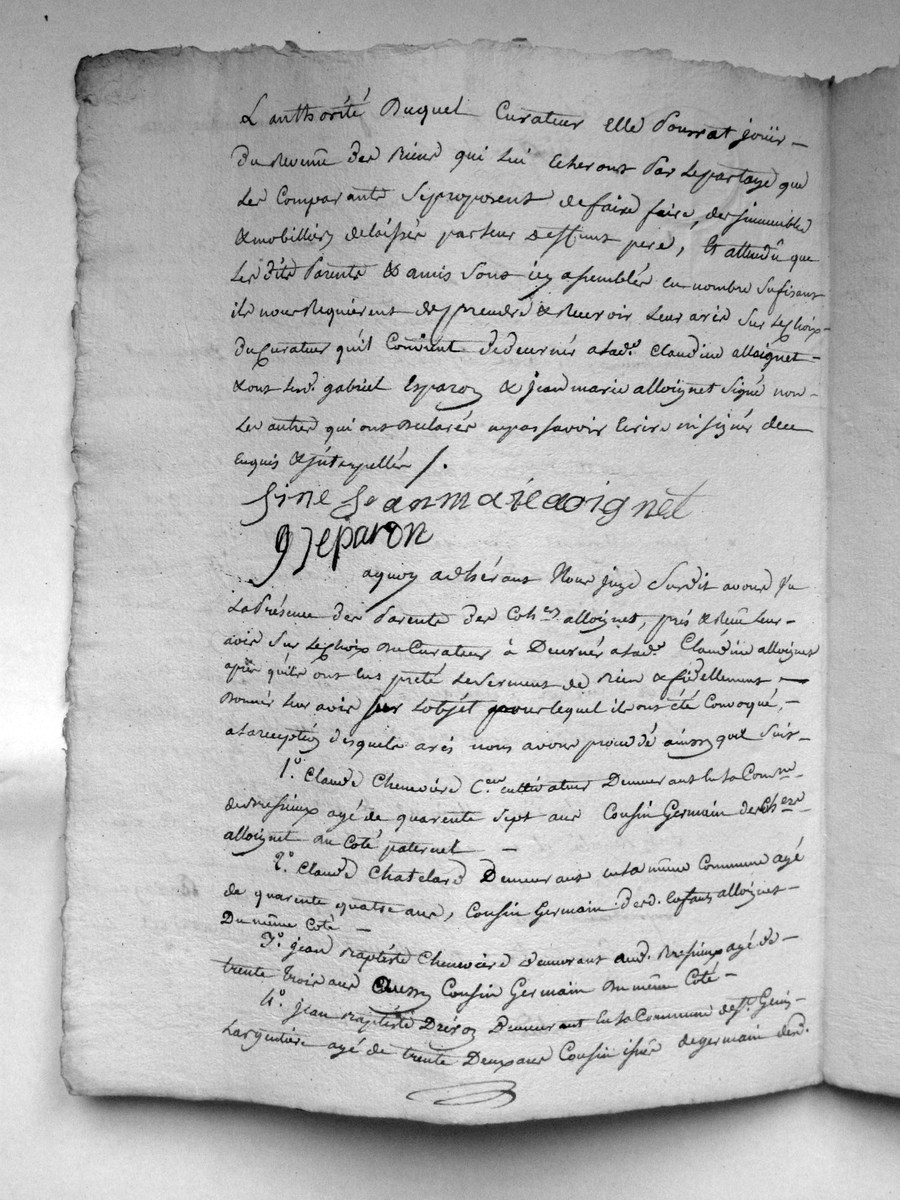 L'authorité Duquel Curateur elle Pourrat joüir –
Du Revenu des Biens qui lui Echeront Par Le partage que
Les Comparants Se proposent de faire faire, des immeubles
& mobilliers délaissés par leur Deffunt pere, Et attendû que
Les dits Parents & amis Sont icy assemblés en nombre Sufisant
ils nous Requièrent de prendre & Recevoir Leurs avis Sur Le choix
Du Curateur qu'il Convient de decerner a lad.e Claudine alloignet –
& ont Lesd. gabriel Esparon & jean marie alloignet Signé non
Les autres qui ont Declarés ne pas savoir Ecrire ni signer de ce
Enquis & interpellés /.
Sine Jeanmarieaoignet
g Jeparon
a quoy adhérant Nous juge Susdit avons Vu
La Présence des Parents des Coh.ers alloignet, pris & Reçu Leurs –
avis Sur Le choix Du Curateur à Decerner a lad.e Claudine alloignet
après qu'ils ont Eus preté Le Serment de Bien & fidellement –
Donner Leur avis sur L'objet pour lequel ils ont été Convoqué, –
a La reception desquels avis nous avons procedé ainsy que Suit –
1.o Claude Chenevière C.en cultivateur Demeurant En La Comm.ne
de Bressieux agé de quarente Sept ans Cousin Germain des
alloignet Du Coté paternel –
2.o Claude Chatelard Demeurant En La même Commune agé
de quarente quatre ans, Cousin Germain desd. Enfans alloignet –
Du même Coté –
3.o jean Baptiste Chenevière Demeurant aud. Bressieux agé de –
trente trois ans aussy Cousin Germain Du même Coté –
4.o Jean Baptiste Demeurant En La Commune de S.t Genis –
Largentière agé de trente Deux ans Cousin issue de germain desd.